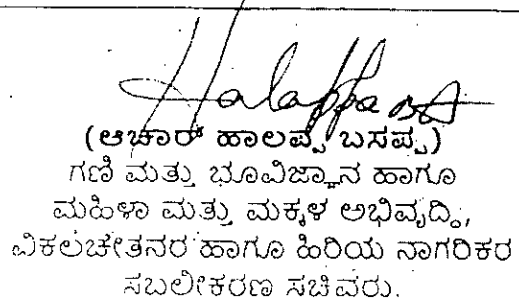 Halappa
(ಆಚಾರ್ ಹಾಲಪ್ಪ ಬಸಪ್ಪ)
ಗಣಿ ಮತ್ತು ಭೂವಿಜ್ಞಾನ ಹಾಗೂ
ಮಹಿಳಾ ಮತ್ತು ಮಕ್ಕಳ ಅಭಿವೃದ್ಧಿ,
ವಿಕಲಚೇತನರ ಹಾಗೂ ಹಿರಿಯ ನಾಗರಿಕರ
ಸಬಲೀಕರಣ ಸಚಿವರು.